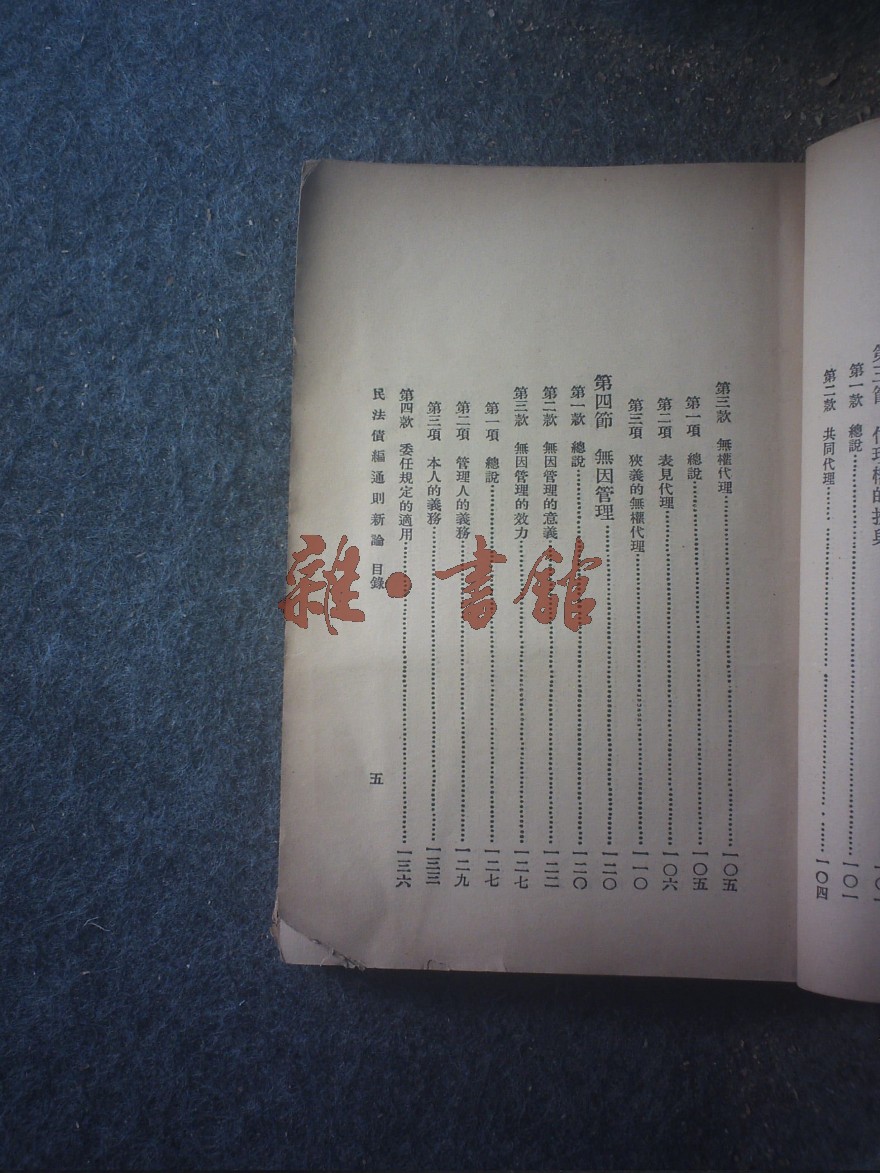 第一款　總說……一〇一
第二款　共同代理……一〇四
第三款　無權代理……一〇五
第一項　總說……一〇五
第二項　表見代理……一〇六
第三項　狹義的無權代理……一一〇
第四節　無因管理……一二〇
第一款　總說……一二〇
第二款　無因管理的意義……一二二
第三款　無因管理的效力……一二七
第一項　總說……一二七
第二項　管理人的義務……一二九
第三項　本人的義務……一三三
第四款　委任規定的適用……一三六
民法債編通則新論　目錄　五
雜·書館